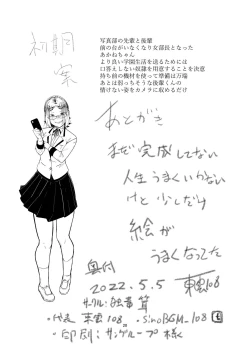 初期案
写真部の先輩と後輩
前の台がいなくなり女部長となった
あかねちゃん
より良い学園生活を送るためには
口答えしない奴隷を用意することを決意
持ち前の機材を使って準備は万端
あとは弱っちそうな後輩くんの
情けない姿をカメラに収めるだけ
あとがき
まだ完成してない
人生うまくいかない
けど少しだけ
絵が
うまくなってた
奥付
2022.5.5
108
サークル:
・代表 108 ・SinoBGM_108
・印刷:サングループ様